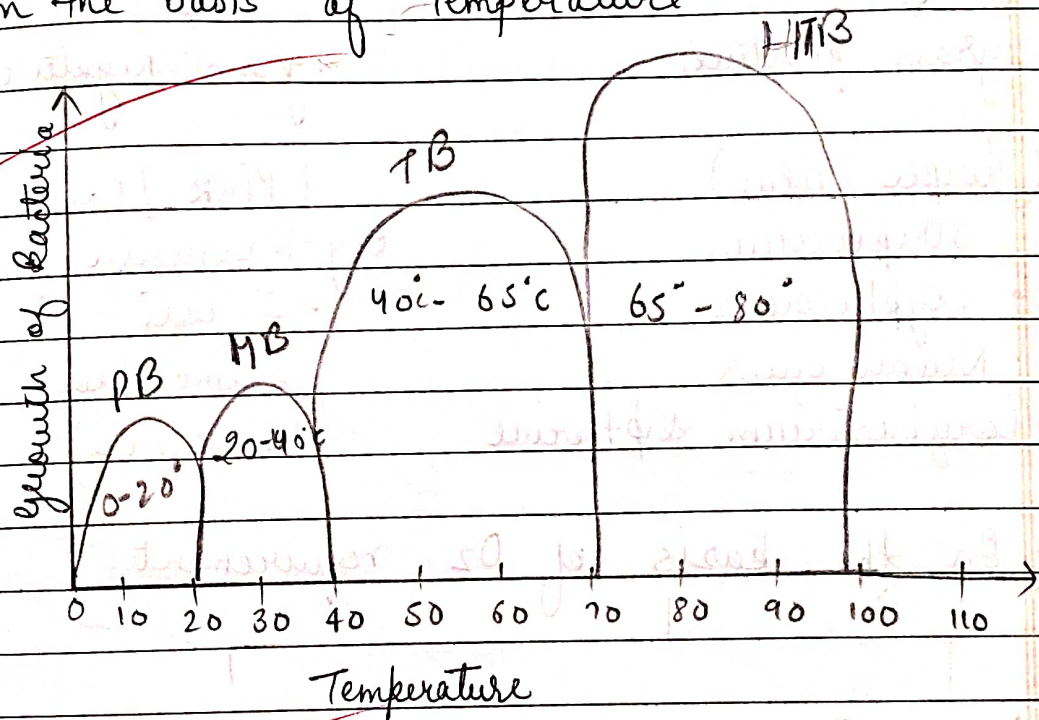 n the basis of Temperature
HTB
TB
MB
PB
40°c - 65°c
65° - 80°
20-40°c
0-20°
Growth of Bacteria
0 10 20 30 40 50 60 70 80 90 100 110
Temperature